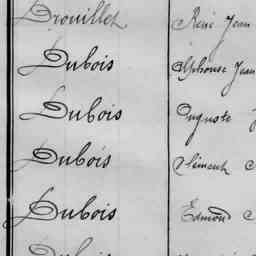 Drouillet René Jean
Dubois Alphonse Jean
Dubois Auguste J
Dubois Clément
Dubois Edmond
Dubois